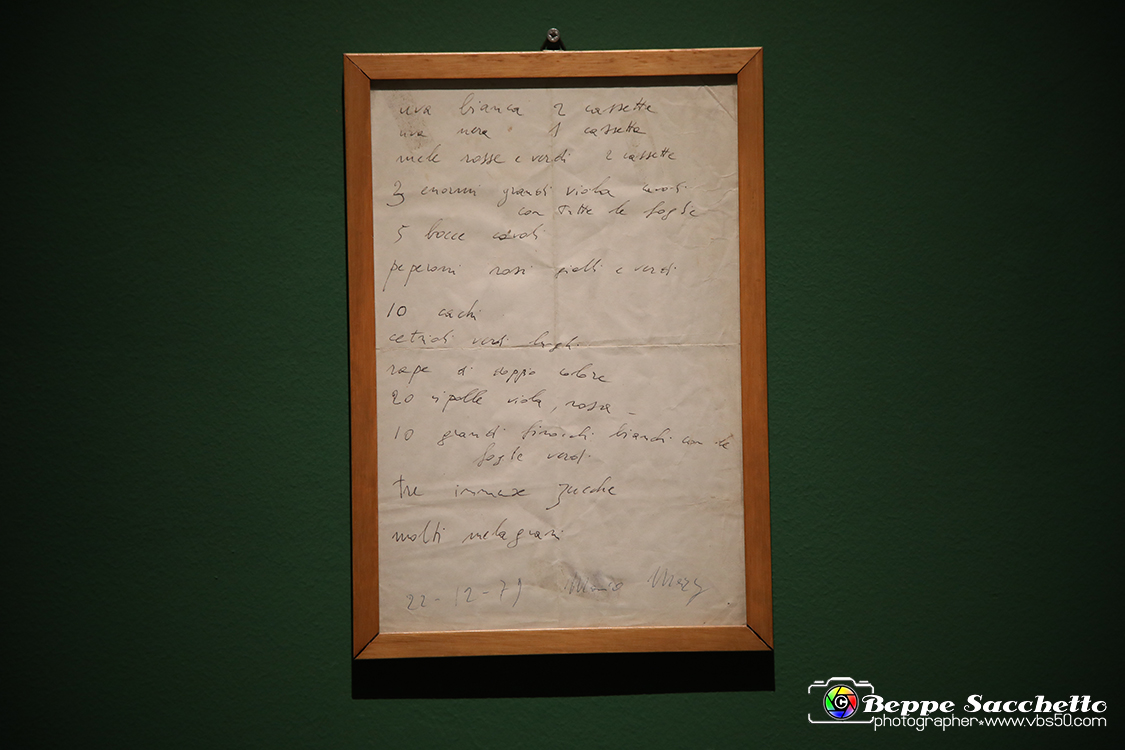 uva bianca 2 cassette
uva nera 1 cassetta
mele rosse e verdi 2 cassette
3 enormi grandi viola cavoli
con tutte le foglie
5 bocce cavoli
peperoni rossi gialli e verdi
10 cachi
cetrioli verdi lunghi
rape di doppio colore
20 cipolle viola, rossa -
10 grandi finocchi bianchi con le
foglie verdi
tre immense zucche
molti melagrani
22-12-79 Mario Merz
© Beppe Sacchetto
photographer★www.vbs50.com